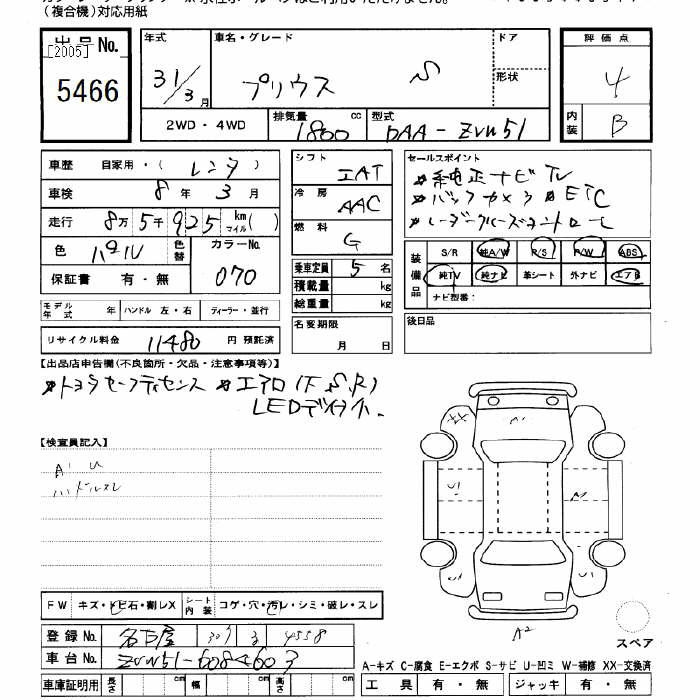 (複合機)対応用紙
出品No.
[2005]
5466
年式 車名・グレード ドア
31/3月 プリウス S 形状
評価点
4
内装 B
2WD・4WD 排気量 1800 cc 型式 DAA-ZVW51
車歴 自家用・( レンタ )
車検 8年 3月
走行 8万 5千 925 km マイル( )
色 パール 色替 カラーNo. 070
保証書 有・無
モデル年式 年 ハンドル 左・右 ディーラー・並行
リサイクル料金 11480 円 預託済
シフト IAT
冷房 AAC
燃料 G
乗車定員 5 名
積載量 kg
総重量 kg
名変期限 月 日
セールスポイント
純正ナビTV
バックカメラ ETC
レーダークルーズコントロール
装備品 S/R 純A/W R/S P/W ABS
純TV 純ナビ 革シート 外ナビ エアB
ナビ型番:
後日品
【出品店申告欄(不良箇所・欠品・注意事項等)】
トヨタセーフティセンス エアロ(F,S,R)
LEDデイライト
【検査員記入】
A' U
ハンドルスレ
FW キズ・トビ石・割レX シート内装 コゲ・穴・汚レ・シミ・破レ・スレ
登録No. 名古屋 303 3 4558
車台No. ZVW51-6084603
車庫証明用 長さ cm 幅 cm 高さ cm
A2
スペア
A-キズ C-腐食 E-エクボ S-サビ U-凹ミ W-補修 XX-交換済
工具 有・無 ジャッキ 有・無